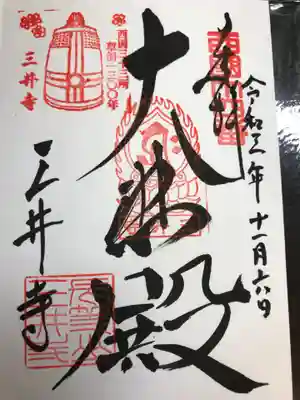 奉拝
令和元年十一月六日
大悲殿
三井寺
三井寺
西国三十三所
草創一三〇〇年